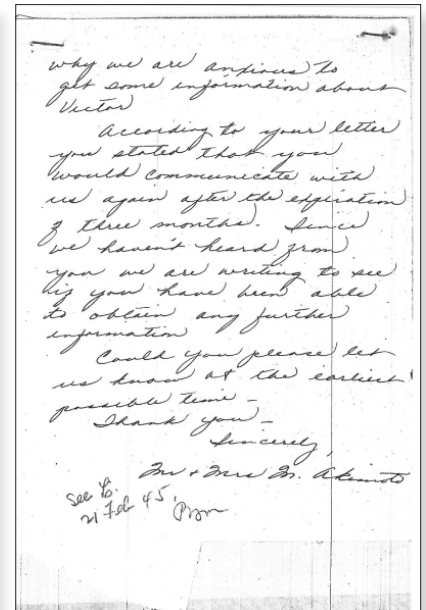 why we are anxious to
get some information about
Victor
According to your letter
you stated that you
would communicate with
us again after the expiration
of three months. Since
we haven't heard from
you we are writing to see
if you have been able
to obtain any further
information
Could you please let
us know at the earliest
possible time -
Thank you -
Sincerely,
Mr + Mrs M. Akimoto
see
21 Feb 45